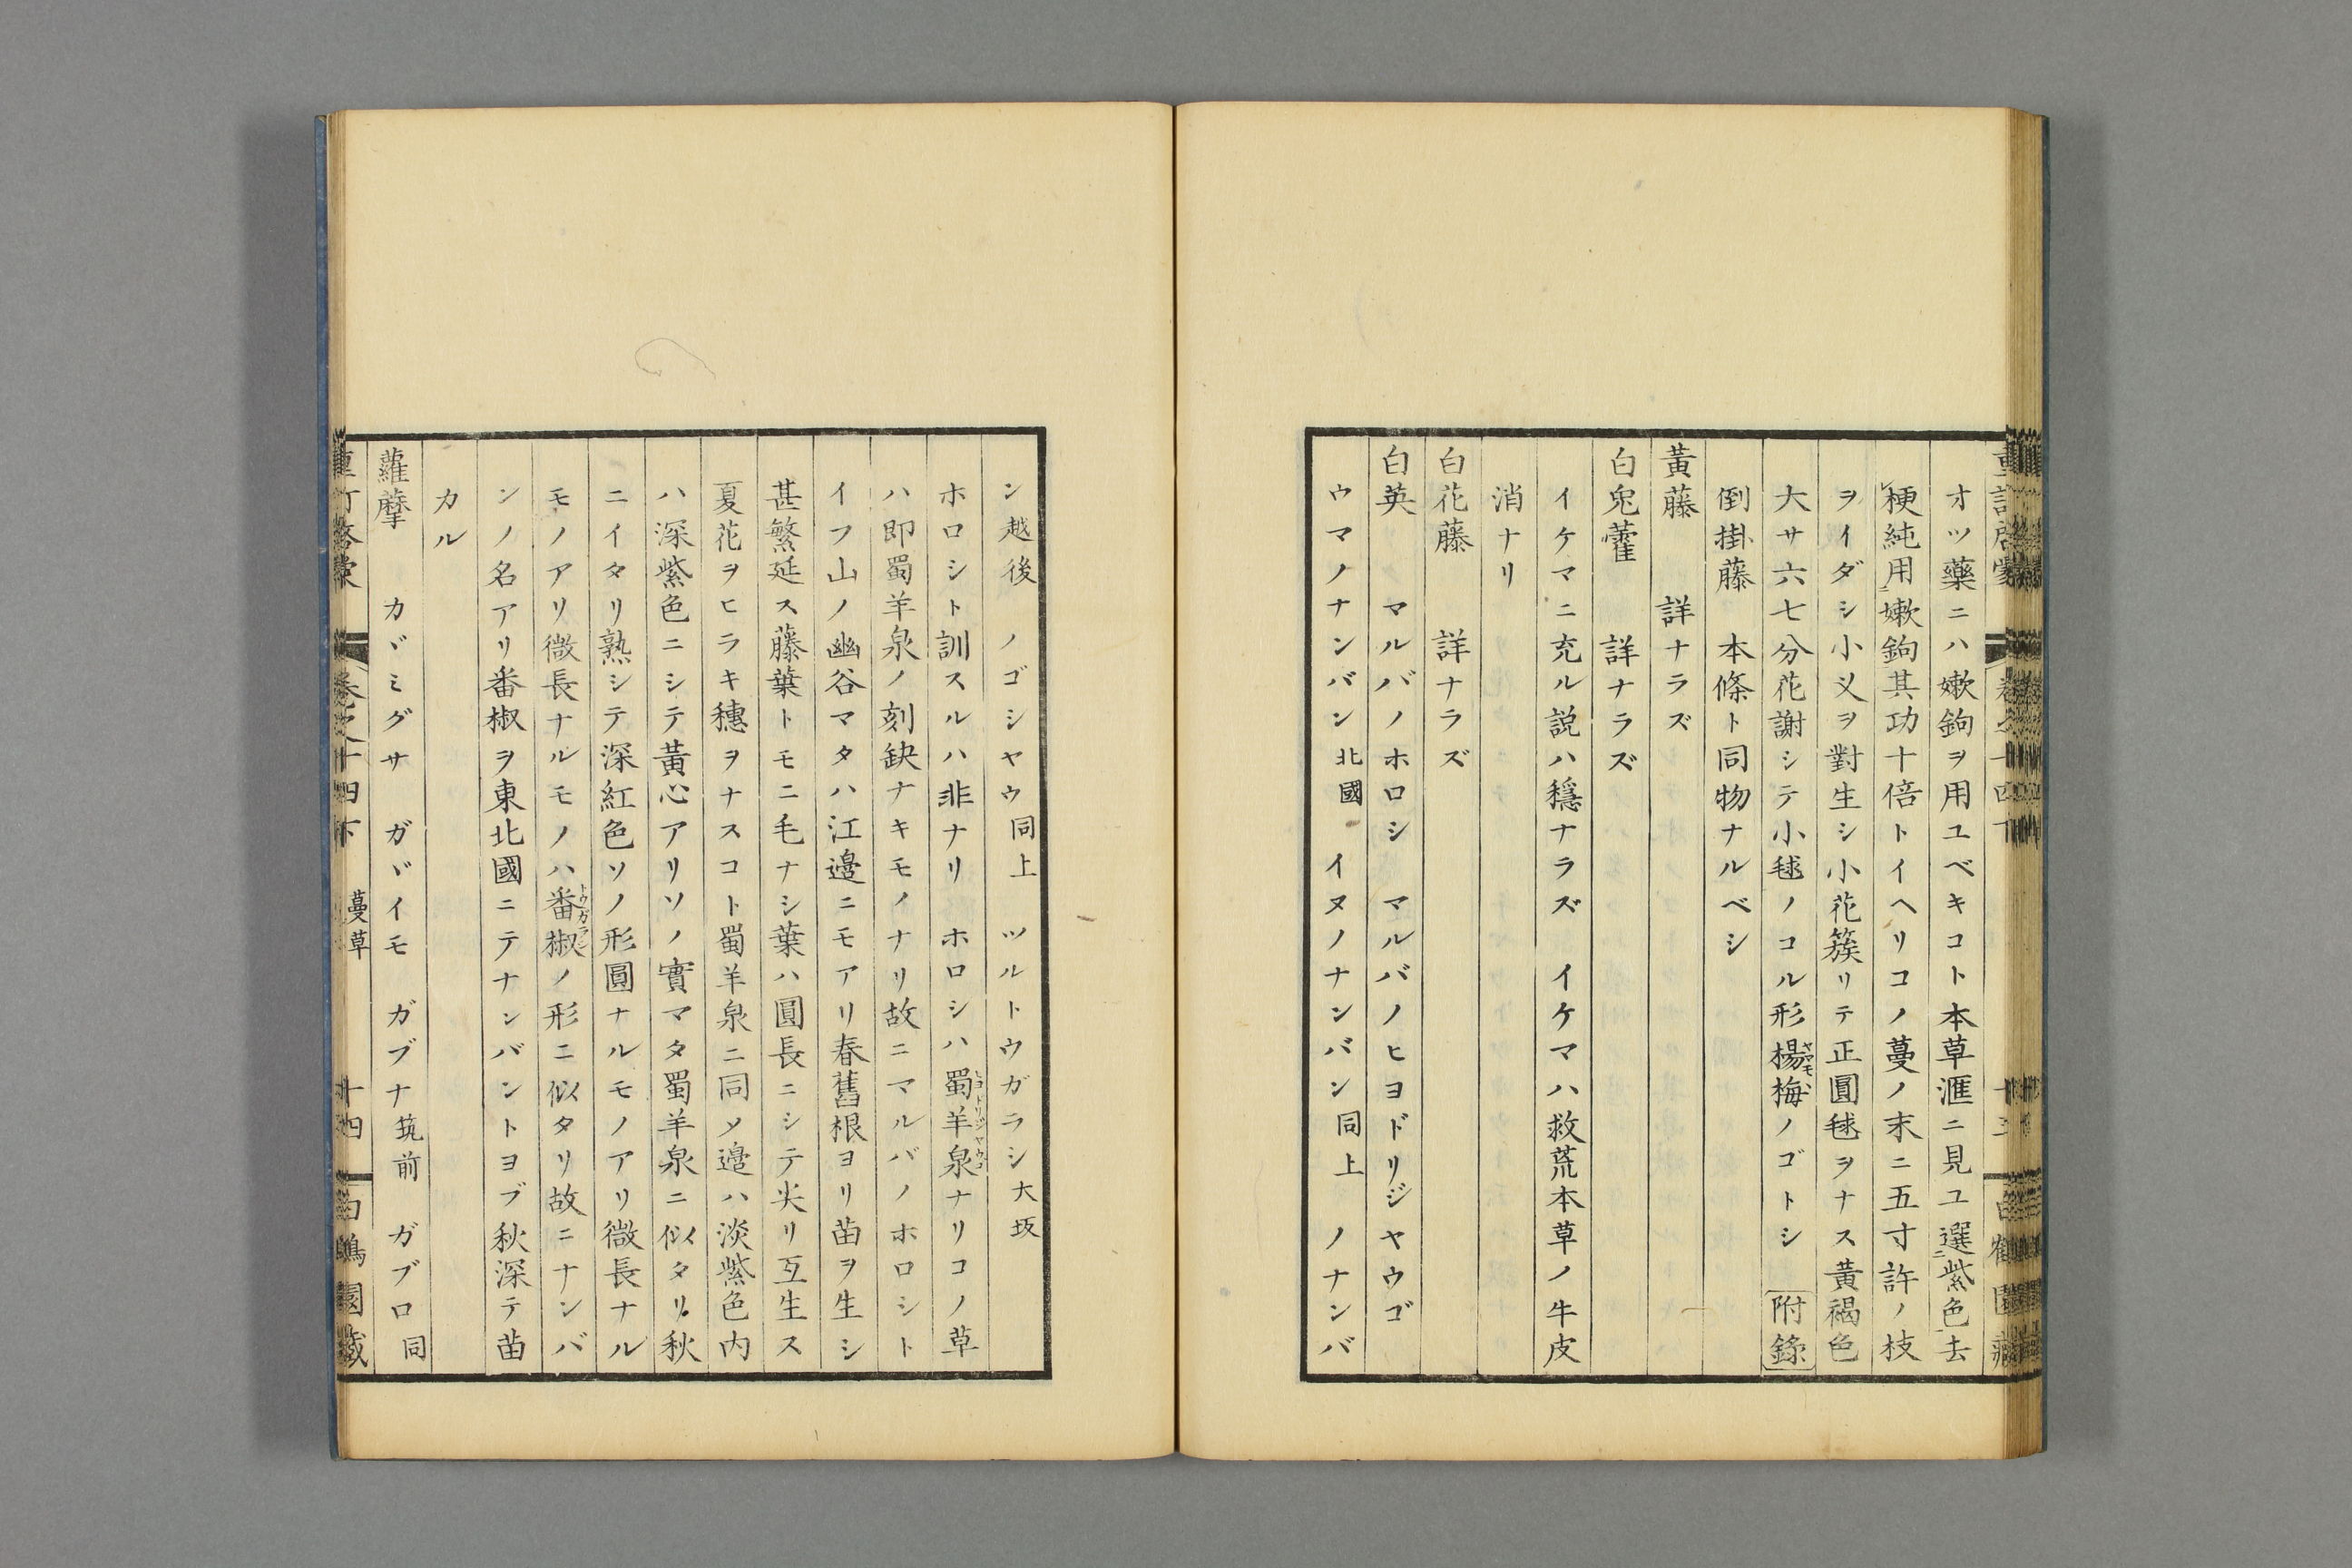 オツ藥ニハ嫰鉤ヲ用ユベキコト本草滙ニ見ユ選紫色去
梗純用嫰鉤其功十倍トイヘリコノ蔓ノ末ニ五寸許ノ枝
ヲイダシ小义ヲ對生シ小花簇リテ正圓毬ヲナス黃褐色
大サ六七分花謝シテ小毬ノコル形楊梅ノゴトシ 附錄
倒掛藤 本條ト同物ナルベシ
黃藤 詳ナラズ
白兎藿 詳ナラズ
イケマニ充ル説ハ穩ナラズ イケマハ救荒本草ノ牛皮
消ナリ
白花藤 詳ナラズ
白英 マルバノホロシ マルバノヒヨドリジヤウゴ
ウマノナンバン北國 イヌノナンバン同上 ノナンバ
ン越後 ノゴシヤウ同上 ツルトウガラシ大坂
ホロシト訓スルハ非ナリ ホロシハ蜀羊泉ナリコノ草
ハ即蜀羊泉ノ刻缺ナキモノナリ故ニマルバノホロシト
イフ山ノ幽谷マタハ江邉ニモアリ春舊根ヨリ苗ヲ生シ
甚繁延ス藤葉トモニ毛ナシ葉ハ圓長ニシテ尖リ互生ス
夏花ヲヒラキ穗ヲナスコト蜀羊泉ニ同メ邉ハ淡紫色内
ハ深紫色ニシテ黃心アリソノ實マタ蜀羊泉ニ似タリ秋
ニイタリ熟シテ深紅色ソノ形圓ナルモノアリ微長ナル
モノアリ微長ナルモノハ番椒ノ形ニ似タリ故ニナンバ
ンノ名アリ番椒ヲ東北國ニテナンバントヨブ秋深テ苗
カル
蘿藦 カヾミグサ ガヾイモ ガブナ筑前 ガブロ同
重訂啓蒙 卷之十四下 蔓草 十四